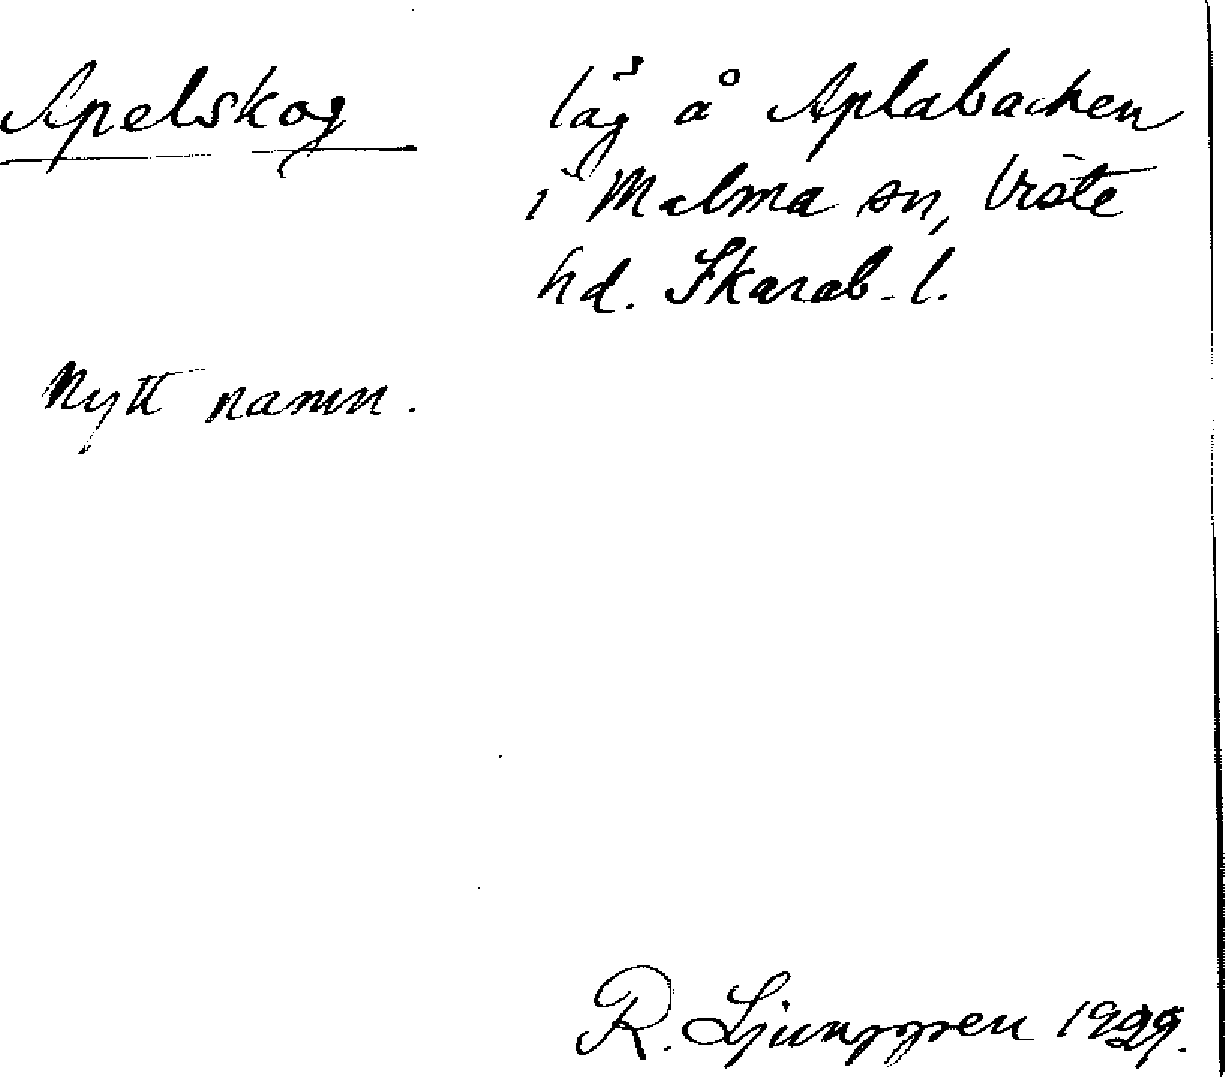 Apelskog låg å Aplabacken
i Malma sn, Viste
hd. Skarab. l.
Nytt namn.
R. Ljunggren 1929.